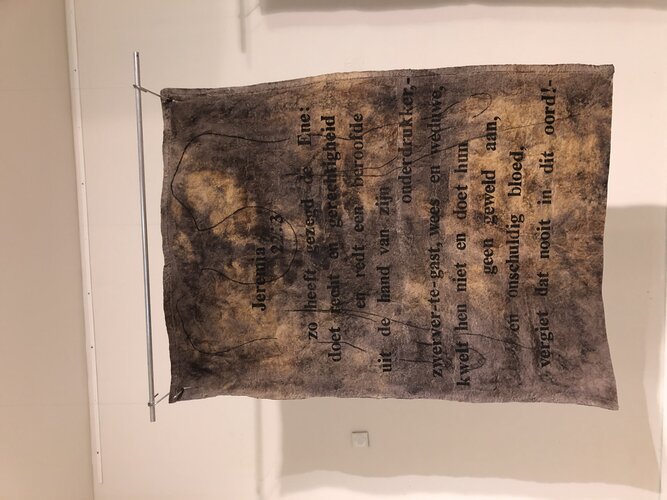 Jeremia
22:3
zo heeft gezegd de Ene:
doet recht en gerechtigheid
en redt een beroofde
uit de hand van zijn
onderdrukker,-
zwerver-te-gast, wees en weduwe,
kwelt hen niet en doet hun
geen geweld aan,
en onschuldig bloed,
vergiet dat nooit in dit oord!-